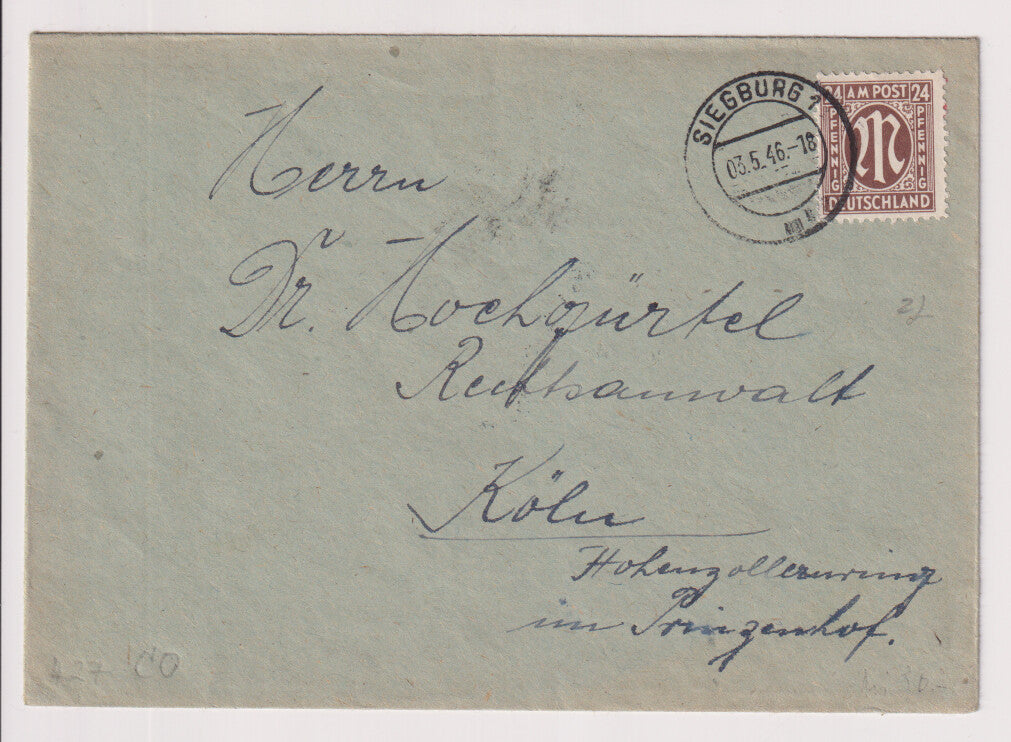 SIEGBURG 1
03.5.46.-18
24 AM POST 24
PFENNIG PFENNIG
M
DEUTSCHLAND
Herrn
Dr. Hochgürtel
Rechtsanwalt
Köln
Hohenzollernring
im Prinzenhof.